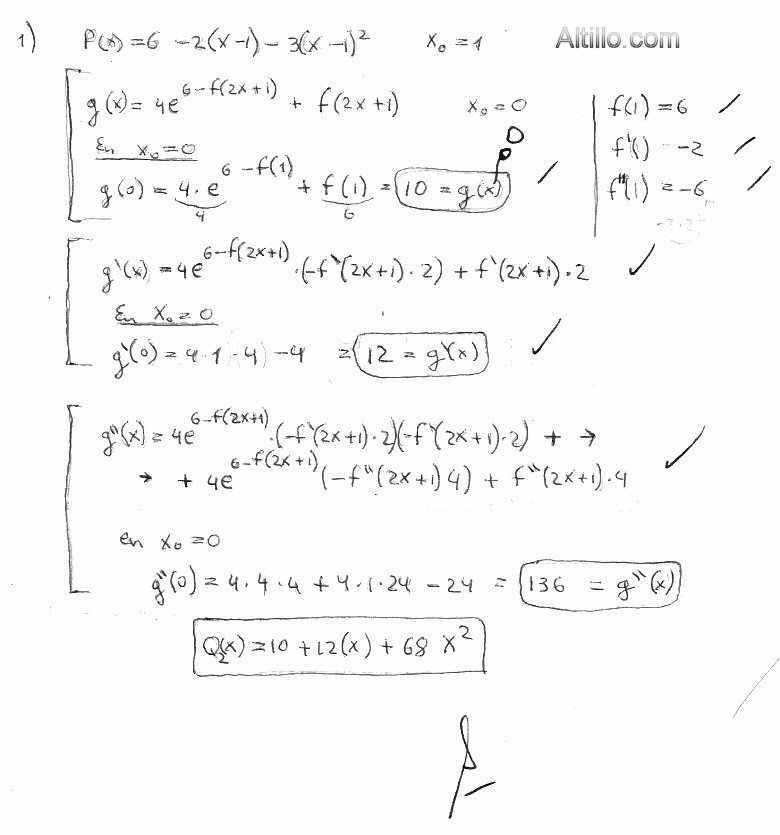 1) P(x) = 6 - 2(x-1) - 3(x-1)² x₀ = 1 Altillo.com
g(x) = 4e^{6-f(2x+1)} + f(2x+1) x₀ = 0
f(1) = 6
f'() = -2
f''(1) = -6
En x₀=0
g(0) = 4 . e^{6-f(1)} + f(1) = 10 = g(x) 0
4 6
g'(x) = 4e^{6-f(2x+1)} . (-f'(2x+1) . 2) + f'(2x+1) . 2
En x₀ = 0
g'(0) = 4 . 1 . 4) - 4 = 12 = g'(x)
g''(x) = 4e^{6-f(2x+1)} . (-f'(2x+1) . 2)(-f'(2x+1) . 2) + →
→ + 4e^{6-f(2x+1)} (-f''(2x+1) 4) + f''(2x+1) . 4
en x₀ = 0
g''(0) = 4 . 4 . 4 + 4 . 1 . 24 - 24 = 136 = g''(x)
Q₂(x) = 10 + 12(x) + 68 x²